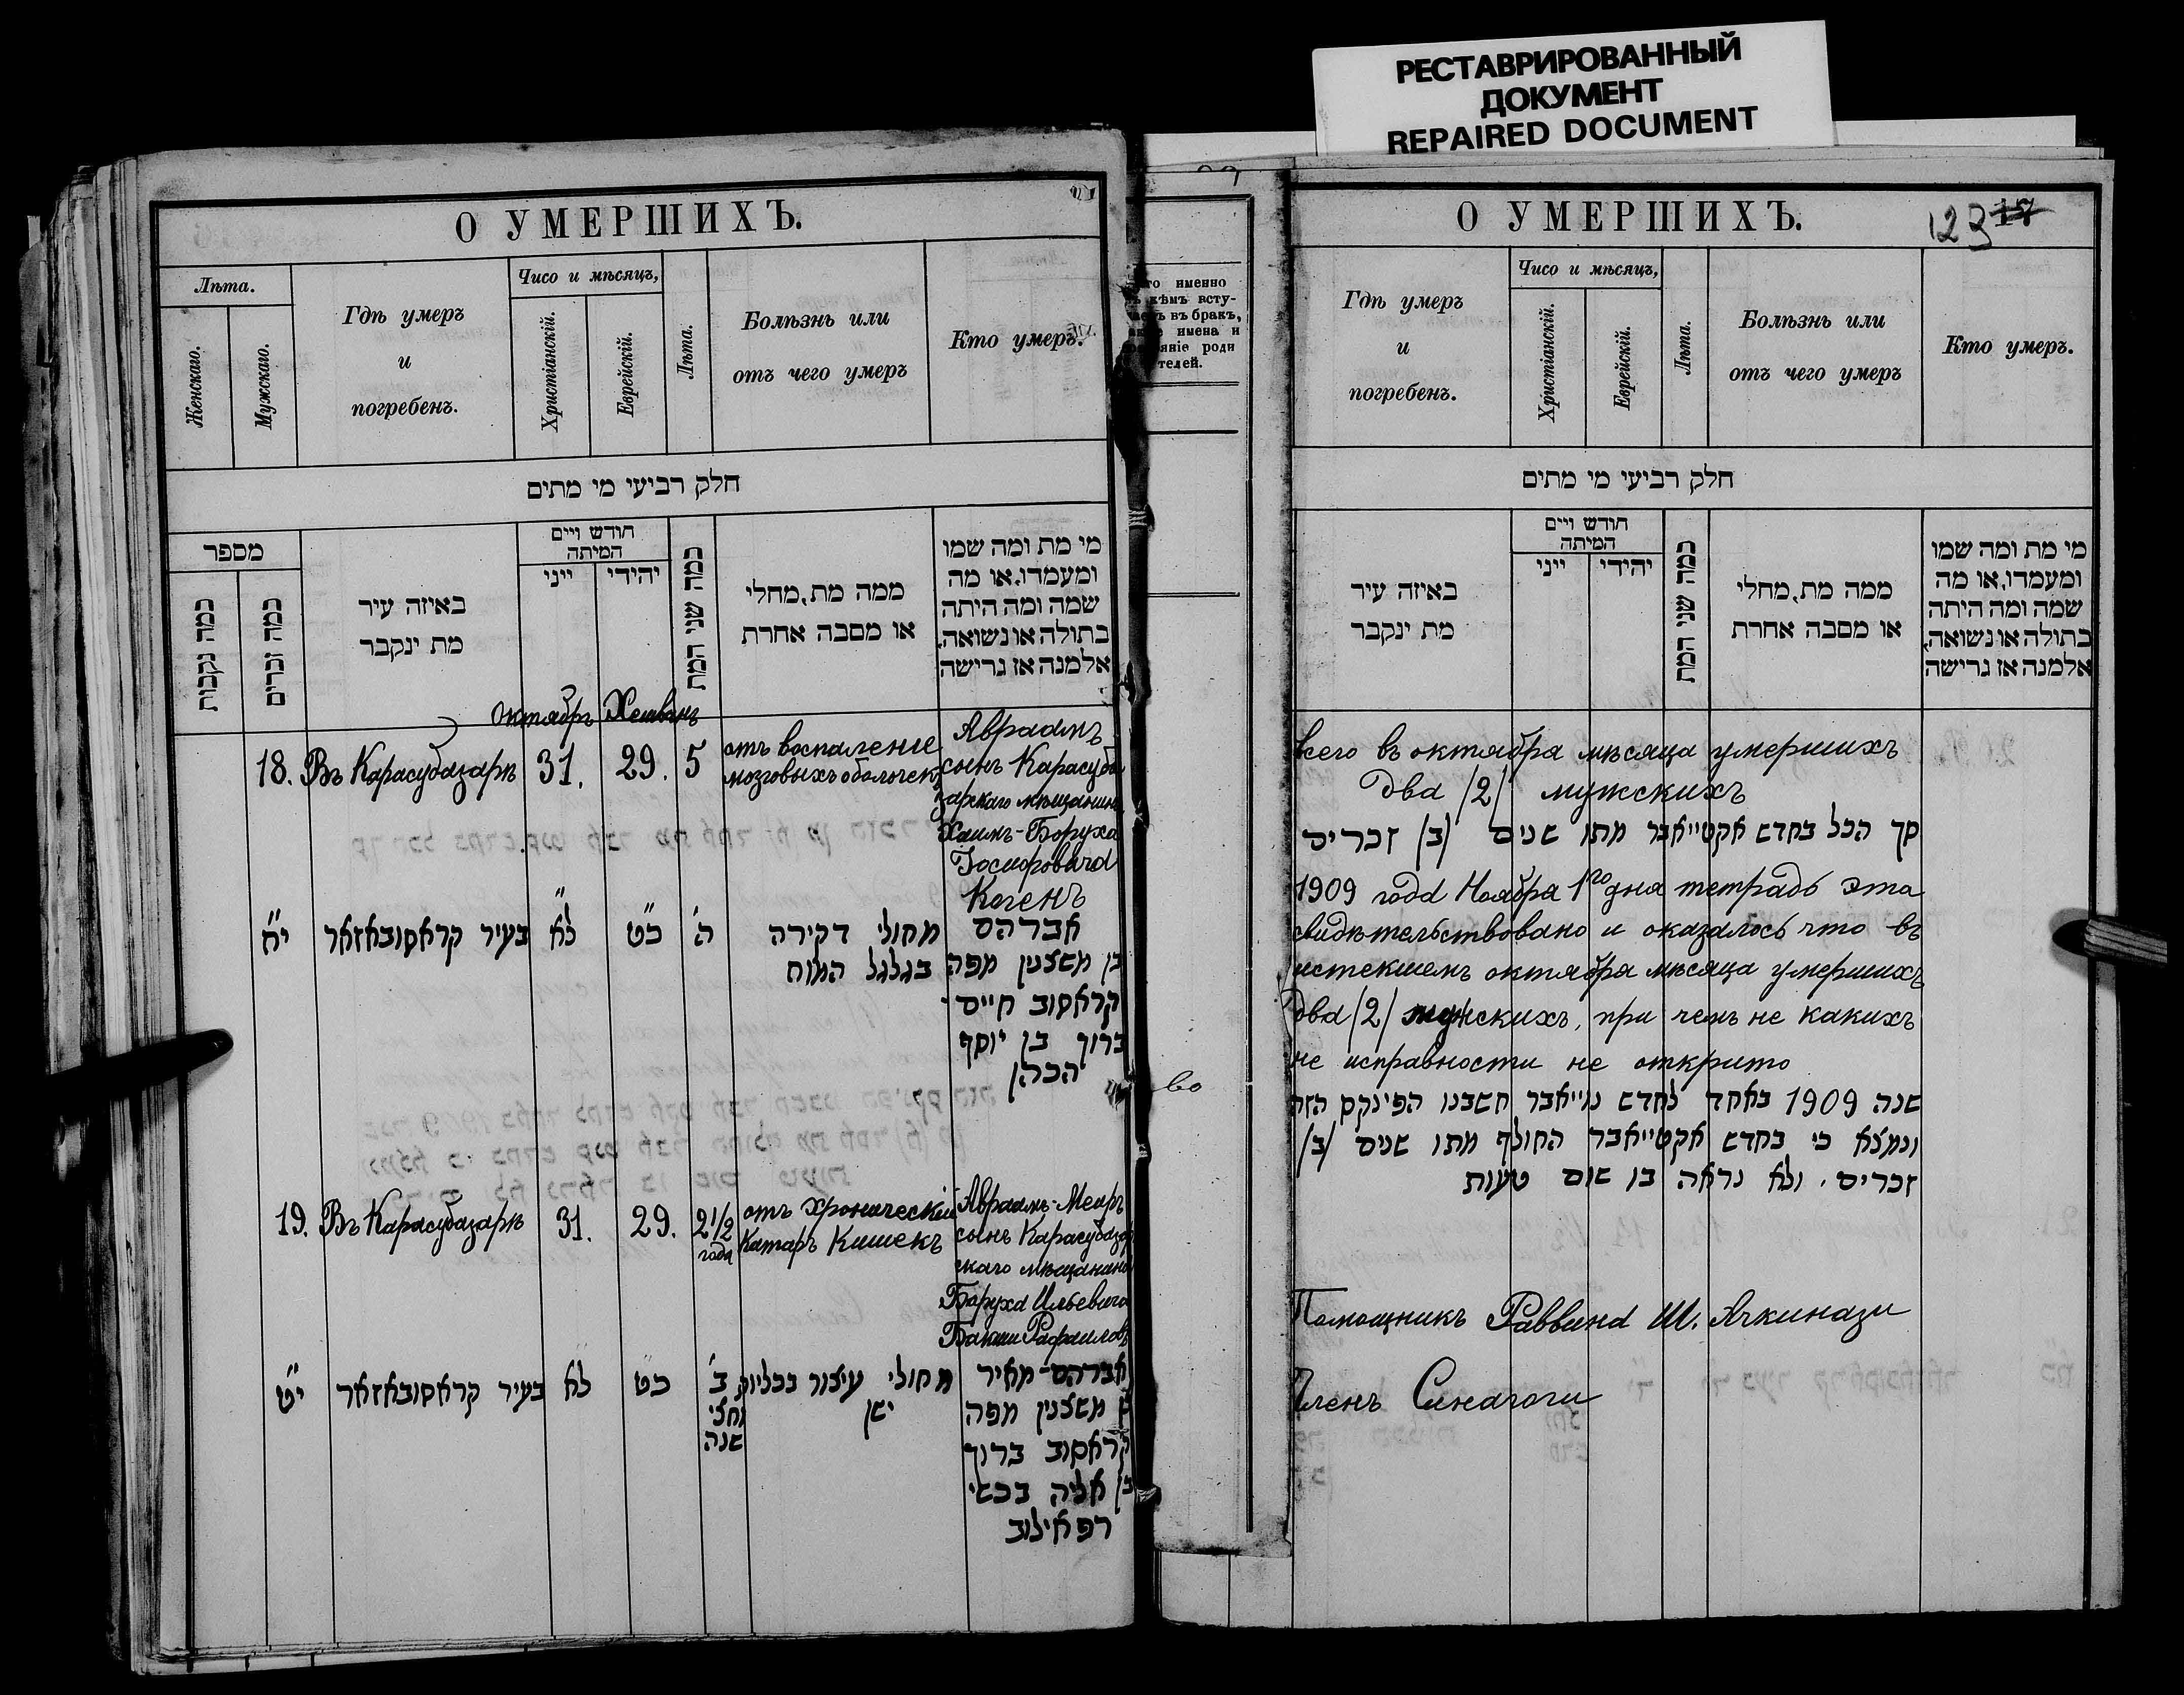 РЕСТАВРИРОВАННЫЙ
ДОКУМЕНТ
REPAIRED DOCUMENT
О УМЕРШИХЪ.
Лѣта.
Женскаго.
Мужскаго.
Гдѣ умеръ
и
погребенъ.
Чисо и мѣсяцъ,
Христіанскій.
Еврейскій.
Лѣта.
Болѣзнь или
отъ чего умеръ
Кто умеръ.
חלק רביעי מי מתים
מספר
כמה נקבות
כמה זכרים
באיזה עיר
מת ינקבר
חודש ויים
המיתה
ייני
יהידי
כמה שני המת
ממה מת, מחלי
או מסבה אחרת
מי מת ומה שמו
ומעמדו, או מה
שמה ומה היתה
בתולה או נשואה,
אלמנה אז גרישה
Октябрь Хешванъ
18. Въ Карасубазарѣ 31. 29. 5
отъ воспаление
мозговыхъ оболочекъ
Авраамъ
сынъ Карасуба
зарскаго мѣщанина
Хаимъ-Боруха
Іосифовича
Когенъ
י״ח בעיר קראסובאזאר ל״א כ״ט ה'
מחולי דקירה
בגלגל המוח
אברהם
בן משצנין מפה
קראסוב חיים
ברוך בן יוסף
הכהן
19. Въ Карасубазарѣ 31. 29. 2 1/2
года
отъ хроническій
Катаръ Кишекъ
Авраамъ-Меаръ
сынъ Карасубазар
скаго мѣщанина
Боруха Ильевича
Бакши Рафаиловъ
י״ט בעיר קראסובאזאר לא כט ב'
וחצי
שנה
מחולי עיצור בכליות
ישן
אברהם-מאיר
בן משצנין מפה
קראסוב ברוך
בן אליה בכשי
רפאילוב
го именно
ъ кѣмъ всту-
въ бракъ,
имена и
яніе роди
телей.
во
О УМЕРШИХЪ.
123 17
Гдѣ умеръ
и
погребенъ.
Чисо и мѣсяцъ,
Христіанскій.
Еврейскій.
Лѣта.
Болѣзнь или
отъ чего умеръ
Кто умеръ.
חלק רביעי מי מתים
באיזה עיר
מת ינקבר
חודש ויים
המיתה
ייני
יהידי
כמה שני המת
ממה מת, מחלי
או מסבה אחרת
מי מת ומה שמו
ומעמדו, או מה
שמה ומה היתה
בתולה או נשואה,
אלמנה אז גרישה
всего въ октября мѣсяца умершихъ
два /2/ мужскихъ
סך הכל בחדש אקטייאבר מתו שנים (ב) זכרים
1909 года Ноября 1го дня тетрадь эта
свидѣтельствовано и оказалось что въ
истекшемъ октября мѣсяца умершихъ
два /2/ мужскихъ, при чемъ не какихъ
не исправности не открито
שנה 1909 באחד לחדש נוייאבר חשבנו הפינקס הזה
ונמצא כי בחדש אקטייאבר החולף מתו שנים (ב)
זכרים. ולא נראה בו שום טעות
Помощникъ Раввина Ш. Ачкинази
Членъ Синагоги